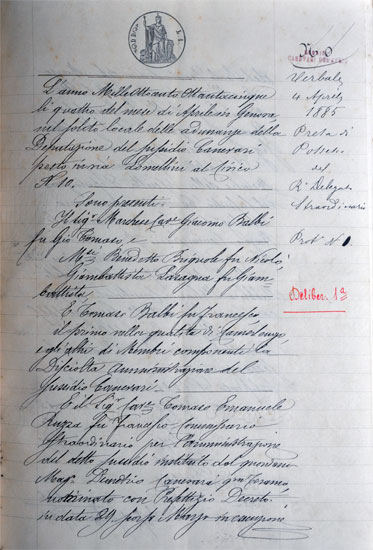 L'anno Milleottocento Ottantacinque
li quattro del mese di Aprile in Genova
nel solito locale delle adunanze della
Deputazione del Sussidio Canevari
posto in via Lomellini al Civico
N. 10.
Sono presenti:
Il Sig. Marchese Cav. Giacomo Balbi
fu Gio Tomaso, e
M.se Benedetto Brignole fu Nicolò
Giambattista Lavagna fu Giam-
battista
E Tomaso Balbi fu Francesco,
il primo nella qualità di Camerlengo,
e gli altri di Membri componenti la
Disciolta Amministrazione del
Sussidio Canevari.
E il Sig. Cav. Tomaso Emanuele
fu Francesco Commissario
Straordinario per l'amministrazione
del detto Sussidio instituito dal
Mag. Demetrio Canevari
nominato con Prefettizio Decreto
in data 29 Marzo
Verbale
4 Aprile
1885
Presa di
Possesso
del
R. Delegato
Straordinario
Prot. N. 1.
Deliber. 1a